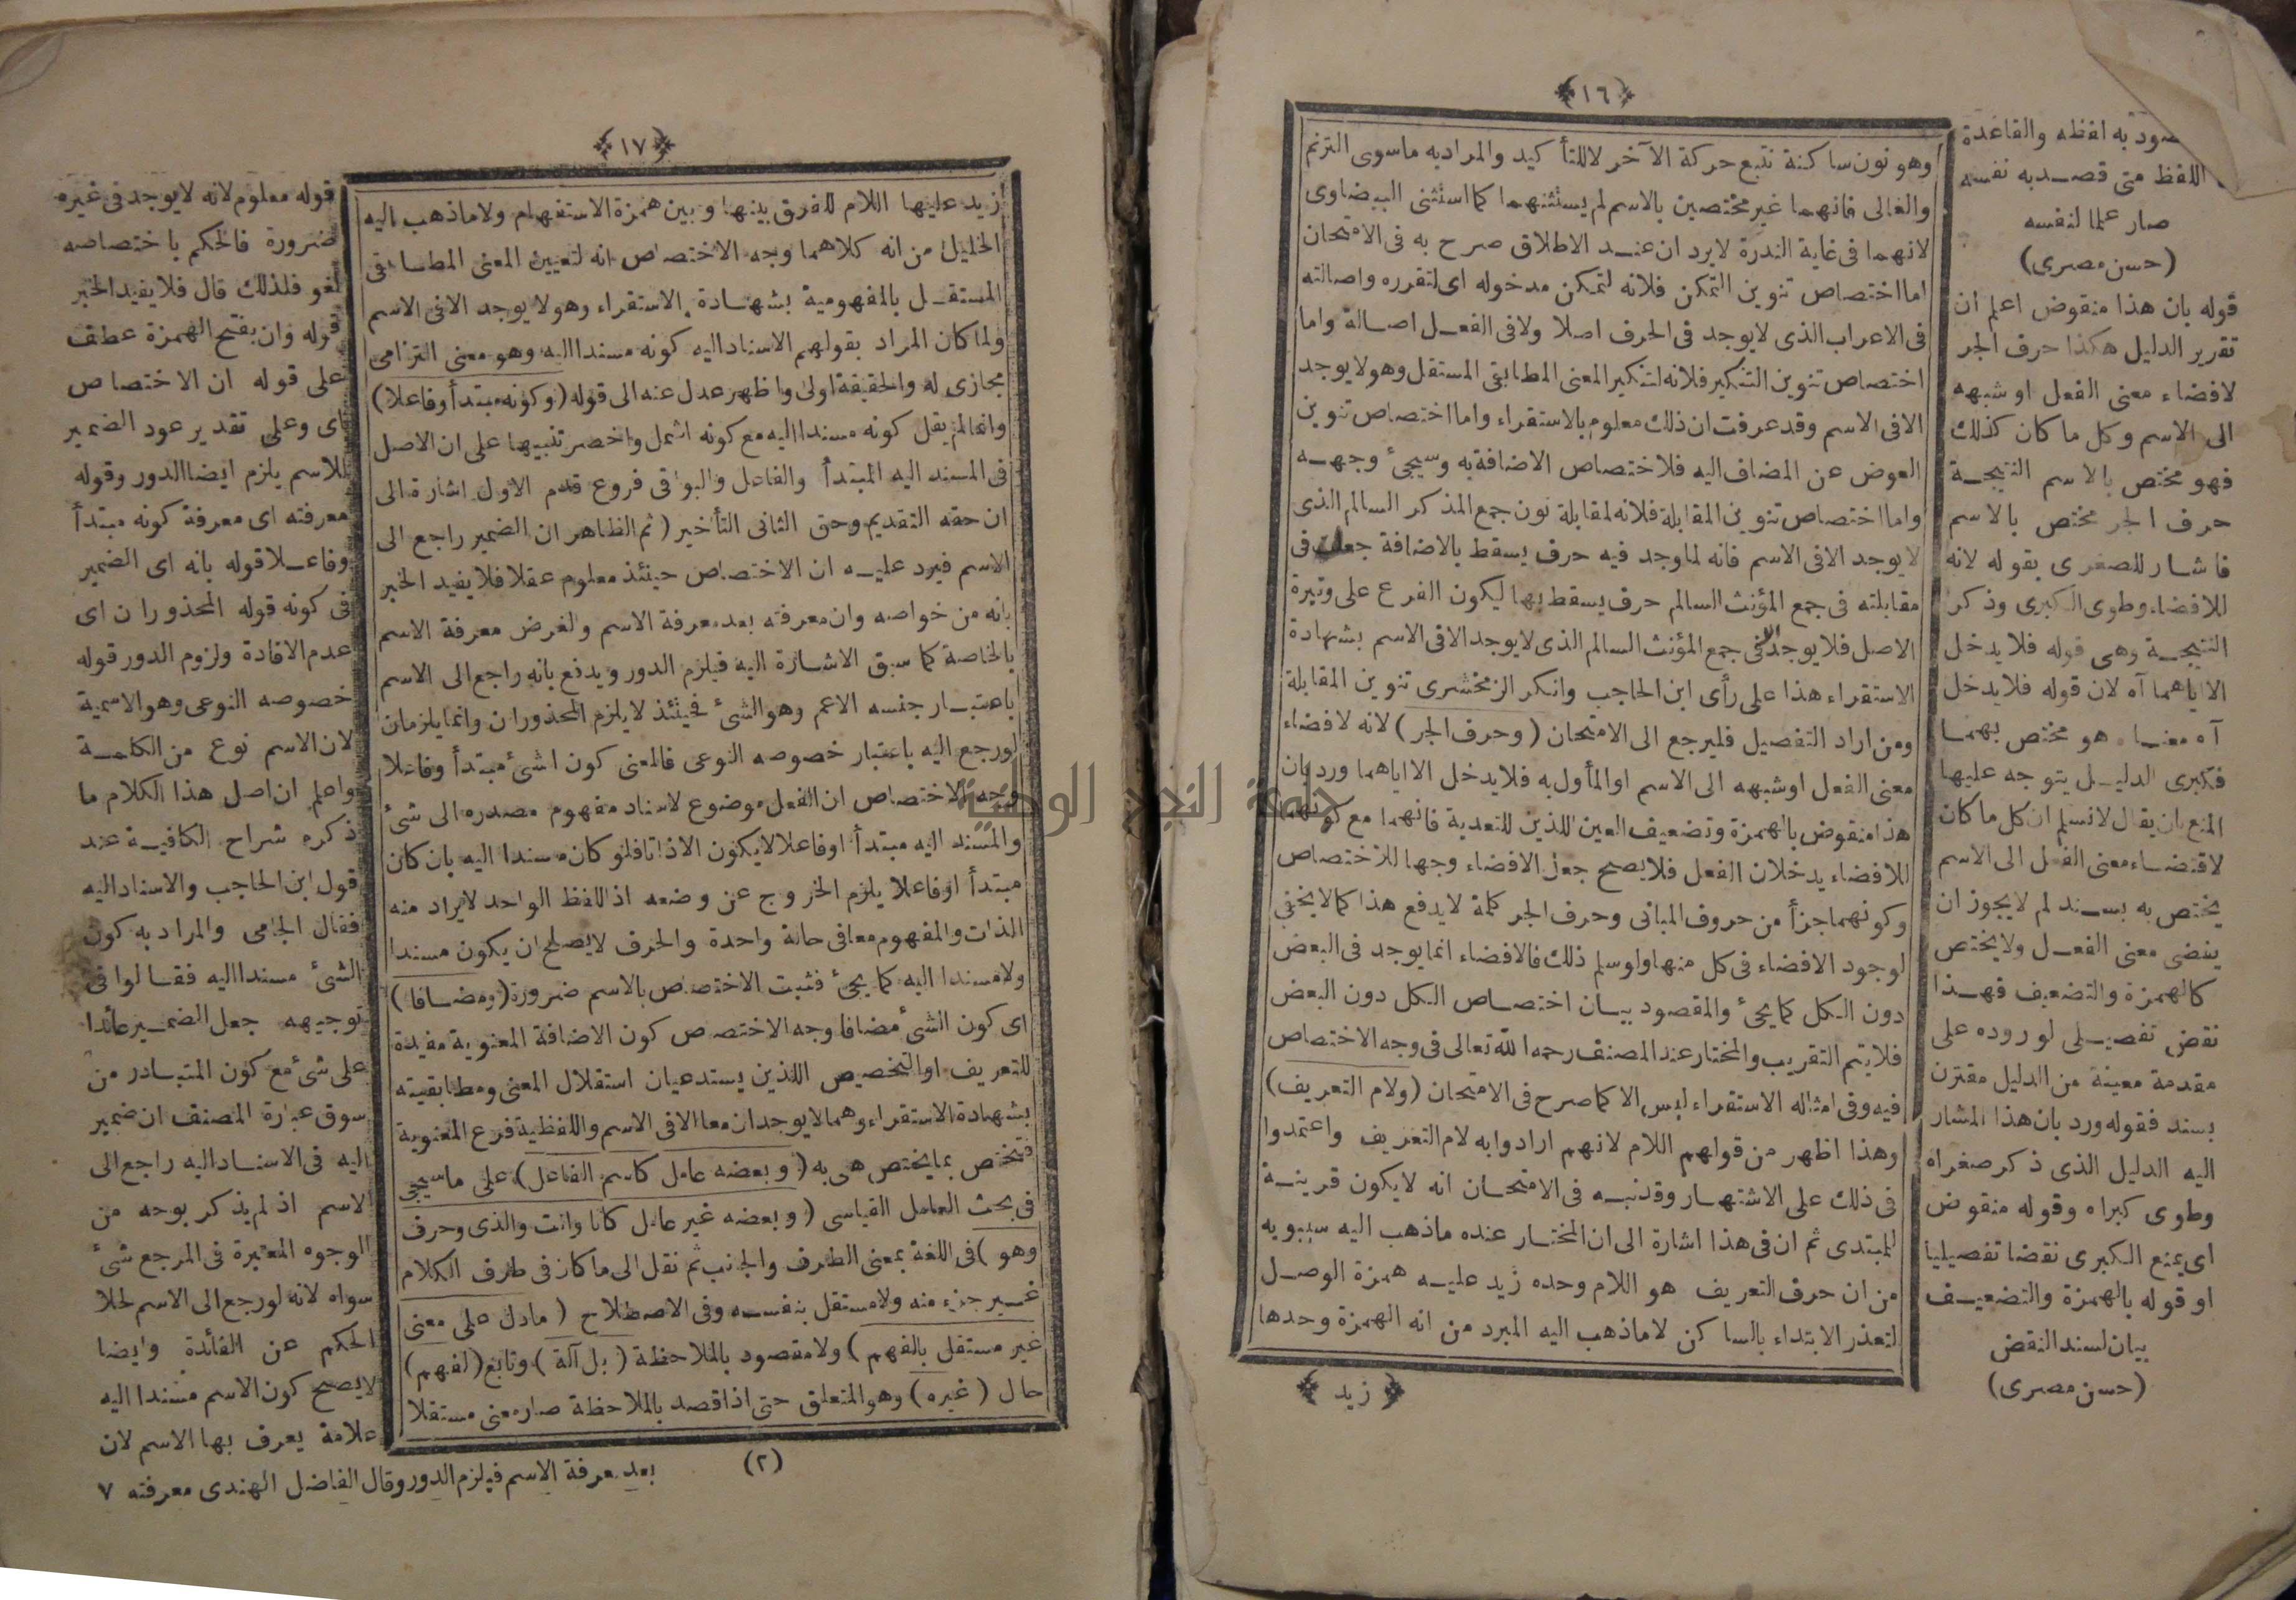 ﴿١٦﴾
وهو نون ساكنة تتبع حركة الآخر لا للتأكيد والمراد به ماسوى الترنم
والغالى فانهما غير مختصين بالاسم لم يستثنهما كما استثنى البيضاوى
لانهما فى غاية الندرة لايرد ان عند الاطلاق صرح به فى الامتحان
اما اختصاص تنوين التمكن فلانه لتمكن مدخوله اى لتقرره واصالته
فى الاعراب الذى لايوجد فى الحرف اصلا ولافى الفعل اصالة واما
اختصاص تنوين التنكير فلانه لتنكير المعنى المطابقى المستقل وهو لايوجد
الافى الاسم وقد عرفت ان ذلك معلوم بالاستقراء واما اختصاص تنوين
العوض عن المضاف اليه فلاختصاص الاضافة به وسيجئ وجهه
واما اختصاص تنوين المقابلة فلانه لمقابلة نون جمع المذكر السالم الذى
لايوجد الافى الاسم فانه لما وجد فيه حرف يسقط بالاضافة جعلت فى
مقابلته فى جمع المؤنث السالم حرف يسقط بها ليكون الفرع على وتيرة
الاصل فلا يوجد الافى جمع المؤنث السالم الذى لايوجد الافى الاسم بشهادة
الاستقراء هذا على رأى ابن الحاجب وانكر الزمخشرى تنوين المقابلة
ومن اراد التفصيل فليرجع الى الامتحان (وحرف الجر) لانه لافضاء
معنى الفعل اوشبهه الى الاسم اوالمأول به فلايدخل الااياهما ورد بان
هذا منقوض بالهمزة وتضعيف العين اللذين للتعدية فانهما مع كونهما
للافضاء يدخلان الفعل فلا يصح جعل الافضاء وجها للاختصاص
وكونهما جزأ من حروف المبانى وحرف الجر كلمة لايدفع هذا كما لايخفى
لوجود الافضاء فى كل منها ولوسلم ذلك فالافضاء انما يوجد فى البعض
دون الكل كما يجئ والمقصود بيان اختصاص الكل دون البعض
فلا يتم التقريب والمختار عند المصنف رحمه الله تعالى فى وجه الاختصاص
فيه وفى امثاله الاستقراء ليس الا كما صرح فى الامتحان (ولام التعريف)
وهذا اظهر من قولهم اللام لانهم ارادوا به لام التعريف واعتمدوا
فى ذلك على الاشتهار وقد نبه فى الامتحان انه لايكون قرينة
للمبتدى ثم ان فى هذا اشارة الى ان المختار عنده ماذهب اليه سيبويه
من ان حرف التعريف هو اللام وحده زيد عليه همزة الوصل
لتعذر الابتداء بالساكن لاماذهب اليه المبرد من انه الهمزة وحدها
﴿ زيد ﴾
به لفظه والقاعدة
اللفظ متى قصد به نفسه
صار علما لنفسه
(حسن مصرى)
قوله بان هذا منقوض اعلم ان
تقرير الدليل هكذا حرف الجر
لافضاء معنى الفعل اوشبهه
الى الاسم وكل ما كان كذلك
فهو مختص بالاسم النتيجة
حرف الجر مختص بالاسم
فاشار للصغرى بقوله لانه
للافضاء وطوى الكبرى وذكر
النتيجة وهى قوله فلايدخل
الااياهما آه لان قوله فلايدخل
آه معناه هو مختص بهما
فكبرى الدليل يتوجه عليها
المنع بان يقال لانسلم ان كل ما كان
لاقتضاء معنى الفعل الى الاسم
يختص به بسند لم لايجوز ان
يفضى معنى الفعل ولايختص
كالهمزة والتضعيف فهذا
نقض تفصيلى لوروده على
مقدمة معينة من الدليل مقترن
بسند فقوله ورد بان هذا المشار
اليه الدليل الذى ذكر صغراه
وطوى كبراه وقوله منقوض
اى يمنع الكبرى نقضا تفصيليا
او قوله بالهمزة والتضعيف
بيان لسند النقض
(حسن مصرى)
﴿١٧﴾
زيد عليها اللام للفرق بينها وبين همزة الاستفهام ولاماذهب اليه
الخليل من انه كلاهما وجه الاختصاص انه لتعيين المعنى المطابقى
المستقل بالمفهومية بشهادة الاستقراء وهو لايوجد الافى الاسم
ولما كان المراد بقولهم الاسناد اليه كونه مسندا اليه وهو معنى التزامى
مجازى له والحقيقة اولى واظهر عدل عنه الى قوله (وكونه مبتدأ وفاعلا)
وانما لم يقل كونه مسندا اليه مع كونه اشمل واخصر تنبيها على ان الاصل
فى المسند اليه المبتدأ والفاعل والبواقى فروع قدم الاول اشارة الى
ان حقه التقديم وحق الثانى التأخير (ثم الظاهر ان الضمير راجع الى
الاسم فيرد عليه ان الاختصاص حينئذ معلوم عقلا فلا يفيد الخبر
بانه من خواصه وان معرفته بعد معرفة الاسم والغرض معرفة الاسم
بالخاصة كما سبق الاشارة اليه فيلزم الدور ويدفع بانه راجع الى الاسم
باعتبار جنسه الاعم وهو الشئ فحينئذ لايلزم المحذوران وانما يلزمان
لورجع اليه باعتبار خصوصه النوعى فالمعنى كون الشئ مبتدأ وفاعلا
وجه الاختصاص ان الفعل موضوع لاسناد مفهوم مصدره الى شئ
والمسند اليه مبتدأ اوفاعلا لايكون الاذاتا فلو كان مسندا اليه بان كان
مبتدأ اوفاعلا يلزم الخروج عن وضعه اذ اللفظ الواحد لايراد منه
الذات والمفهوم معا فى حالة واحدة والحرف لايصلح ان يكون مسندا
ولامسندا اليه كما يجئ فثبت الاختصاص بالاسم ضرورة (ومضافا)
اى كون الشئ مضافا وجه الاختصاص كون الاضافة المعنوية مفيدة
للتعريف اوالتخصيص اللذين يستدعيان استقلال المعنى ومطابقيته
بشهادة الاستقراء وهما لايوجدان معا الافى الاسم واللفظية فرع المعنوية
فتختص بما يختص هى به (وبعضه عامل كاسم الفاعل) على ماسيجئ
فى بحث العامل القياسى (وبعضه غير عامل كانا وانت والذى وحرف
وهو) فى اللغة بمعنى الطرف والجانب ثم نقل الى ما كان فى طرف الكلام
غير جزء منه ولامستقل بنفسه وفى الاصطلاح (مادل على معنى
غير مستقل بالفهم) ولامقصود بالملاحظة (بل آلة) وتابع (لفهم)
حال (غيره) وهو المتعلق حتى اذا قصد بالملاحظة صار معنى مستقلا
(٢)
قوله معلوم لانه لايوجد فى غيره
ضرورة فالحكم باختصاصه
لغو فلذلك قال فلا يفيد الخبر
قوله وان بفتح الهمزة عطف
على قوله ان الاختصاص
اى وعلى تقدير عود الضمير
للاسم يلزم ايضا الدور وقوله
معرفته اى معرفة كونه مبتدأ
وفاعلا قوله بانه اى الضمير
فى كونه قوله المحذوران اى
عدم الافادة ولزوم الدور قوله
خصوصه النوعى وهو الاسمية
لان الاسم نوع من الكلمة
واعلم ان اصل هذا الكلام ما
ذكره شراح الكافية عند
قول ابن الحاجب والاسناد اليه
فقال الجامى والمراد به كون
الشئ مسندا اليه فقالوا فى
توجيهه جعل الضمير عائدا
على شئ مع كون المتبادر من
سوق عبارة المصنف ان ضمير
اليه فى الاسناد اليه راجع الى
الاسم اذ لم يذكر بوجه من
الوجوه المعتبرة فى المرجع شئ
سواه لانه لورجع الى الاسم لخلا
الحكم عن الفائدة وايضا
لايصح كون الاسم مسندا اليه
علامة يعرف بها الاسم لان
معرفته بعد معرفة الاسم فيلزم الدور وقال الفاضل الهندى ٧
جامعة النجاح الوطنية